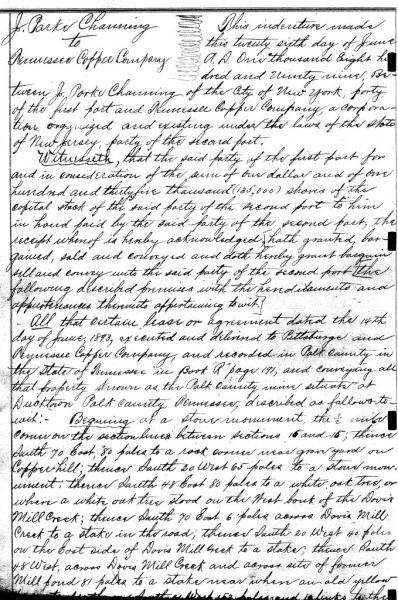 J. Parke Channing
to
Tennessee Copper Company
This indenture made
this twenty sixth day of June
A. D. One thousand Eight hun
dred and Ninety nine, Be-
tween J. Parke Channing of the City of New York, party
of the first part and Tennessee Copper Company, a corpora-
tion organized and existing under the laws of the state
of New Jersey, party of the second part.
Witnesseth, that the said party of the first part for
and in consideration of the sum of one dollar and of one
hundred and thirty five thousand (135,000) shares of the
capital stock of the said party of the second part to him
in hand paid by the said party of the second part, the
receipt whereof is hereby acknowledged, hath granted, bar-
gained, sold and conveyed and doth hereby grant bargain
sell and convey unto the said party of the second part [the
following described premises with the hereditaments and
appurtenances thereunto appertaining to wit,]
All that certain lease or agreement dated the 14th
day of June, 1893, executed and delivered to Pittsburgh and
Tennessee Copper Company, and recorded in Polk County in
the State of Tennessee in Book R page 191, and conveying all
that property known as the Polk County mine situate at
Ducktown Polk County Tennessee, described as follows to-
wit:- Beginning at a stone monument, the ½ mile
corner on the section lines between sections 16 and 15; thence
South 70 East, 80 poles to a rock corner near grave yard on
Copper Hill; thence South 20 West 65 poles to a stone mon
ument; thence South 48 East 80 poles to a white oak tree, or
where a white oak tree stood on the West bank of the Davis
Mill Creek; thence South 70 East 6 poles across Davis Mill
Creek to a stake in the road; thence South 20 West 40 poles
on the East side of Davis Mill Creek to a stake; thence South
48 West, across Davis Mill Creek and across site of former
Mill pond 81 poles to a stake near where an old yellow